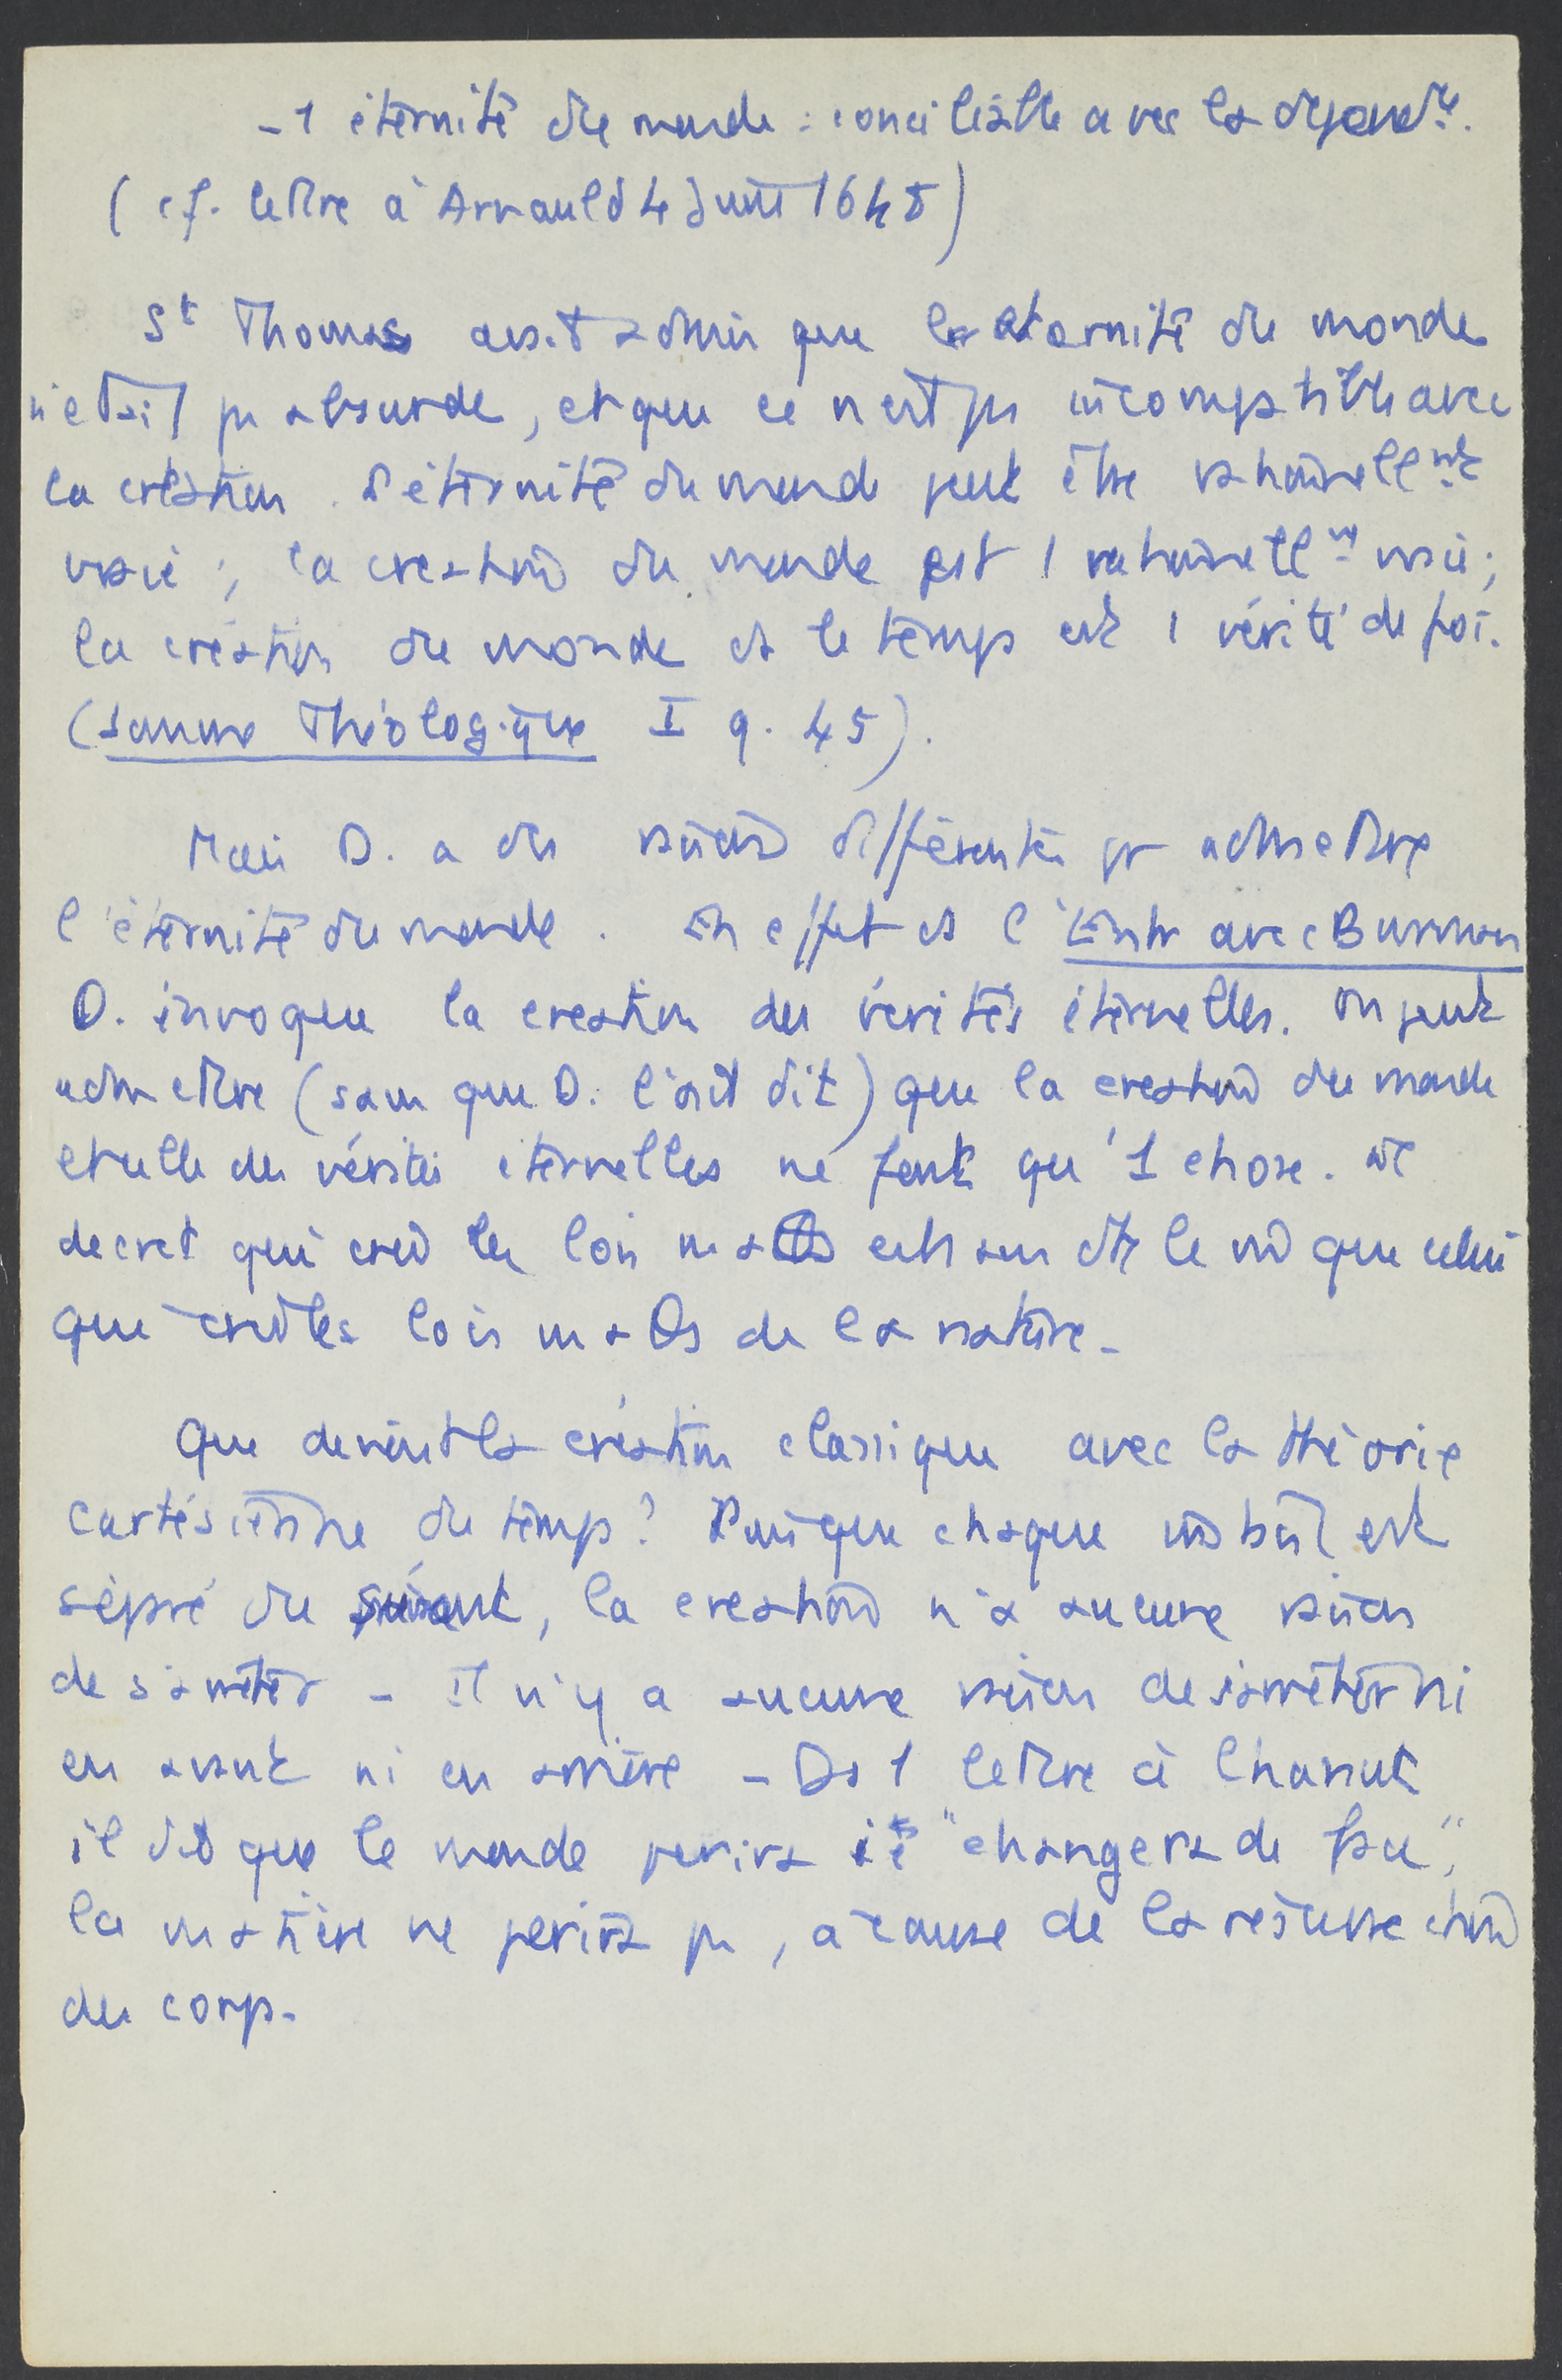 - 1 éternité du monde : conciliable avec la dépendce.
(cf. lettre à Arnauld 4 Juin 1648)
St Thomas avait admis que la eternité du monde
n'était pas absurde, et que ce n'est pas incompatible avec
la création. L'éternité du monde peut être rationnellmt
vraie ; la creation du monde est 1 rationnellmt vraie ;
la création du monde ds le temps est 1 vérité de foi.
(Somme Théologique I q. 45).
Mais D. a des raisons différentes pr admettre
l'éternité du monde. En effet ds l'Entr avec Burman
D. invoque la creation des vérités éternelles. On peut
admettre (sans que D. l'ait dit) que la creation du monde
et celle des vérités éternelles ne font qu'1 chose. Le
decret qui crée les lois maths le m que celui
qui crée les lois maths de la nature -
Que devient la création classique avec la théorie
cartésienne du temps ? Puisque chaque instant est
séparé du suivant, la creation n'a aucune raison
de s'arrêter - Il n'y a aucune raison de s'arrêter ni
en avant ni en arrière - Ds 1 lettre à Chanut
il dit que le monde perira ie "changera de face",
la matière ne périra pas, à cause de la résurrection
des corps -